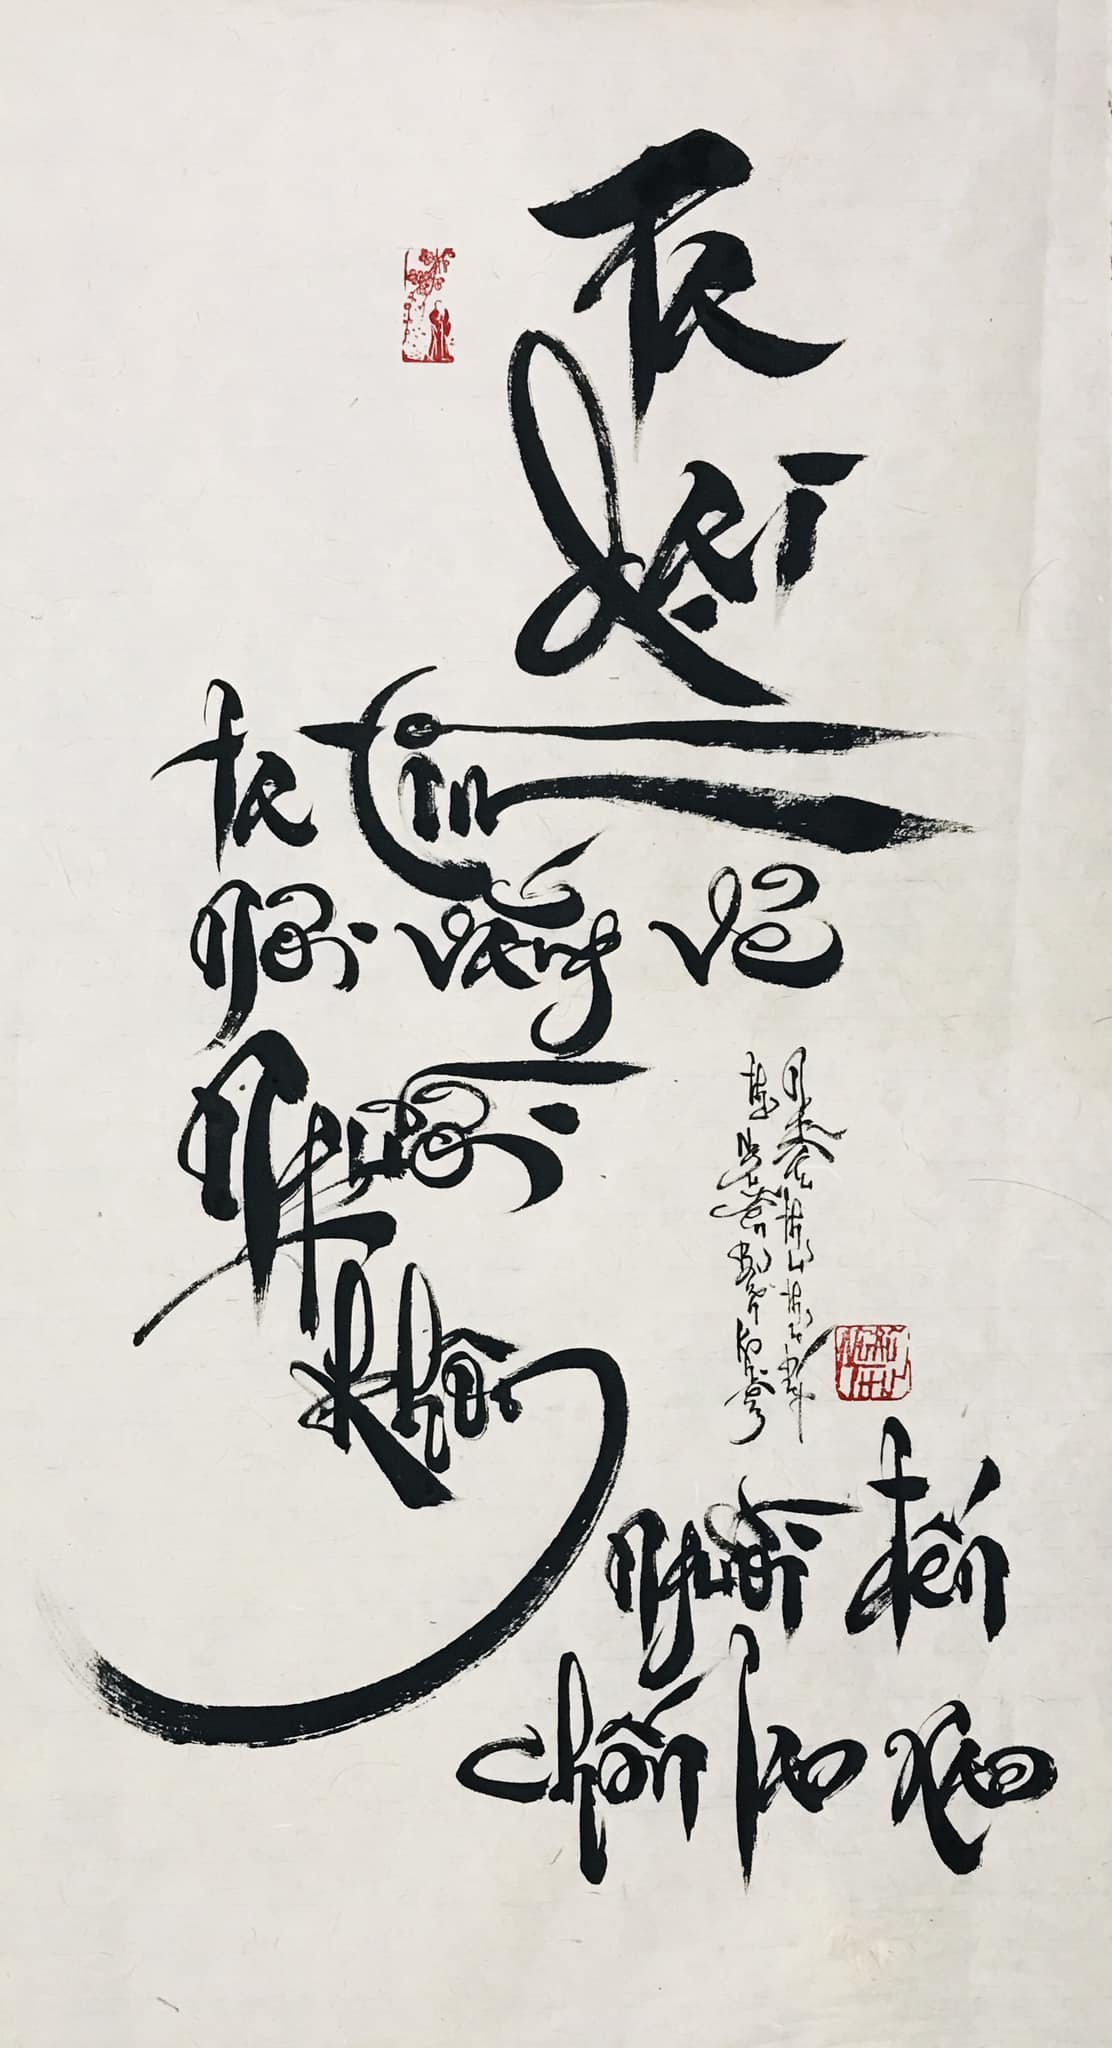 Ta
dại
ta tìm
nơi vắng vẻ
Người
khôn
người đến
chốn lao xao
NGẪU
THƯ